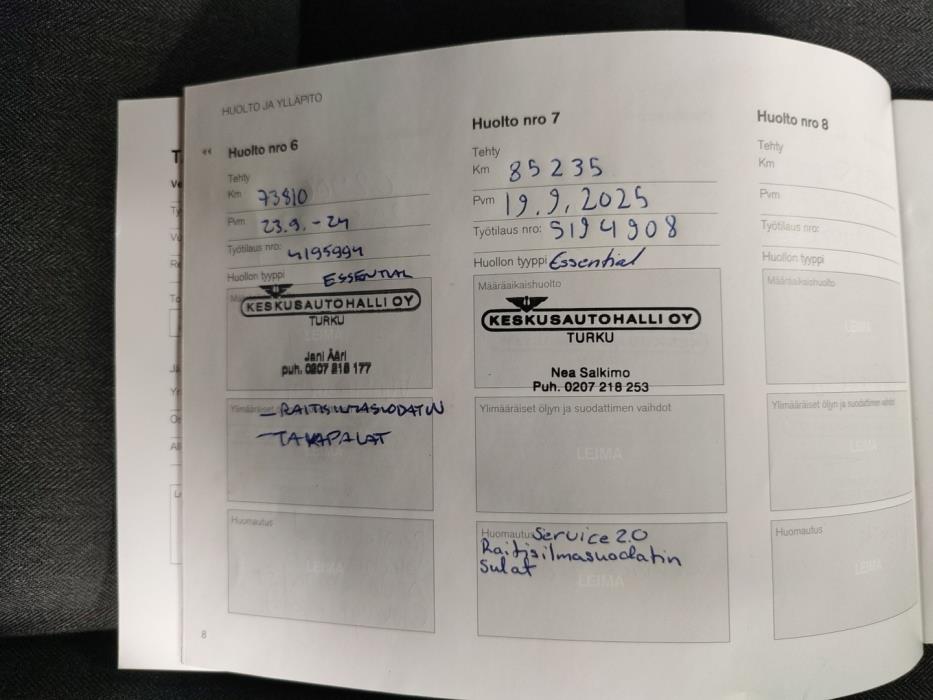 HUOLTO JA YLLÄPITO
Huolto nro 6
Tehty
Km 73810
Pvm 23.9.-24
Työtilaus nro: 4195994
Huollon tyyppi ESSENTIAL
KESKUSAUTOHALLI OY
TURKU
Jani Ääri
puh. 0207 218 177
- RAITISILMASUODATIN
- TAKAPALAT
Huomautus
LEIMA
8
Huolto nro 7
Tehty
Km 85235
Pvm 19.9.2025
Työtilaus nro: 5194908
Huollon tyyppi Essential
Määräaikaishuolto
KESKUSAUTOHALLI OY
TURKU
Nea Salkimo
Puh. 0207 218 253
Ylimääräiset öljyn ja suodattimen vaihdot
LEIMA
Huomautus Service 2.0
Raitisilmasuodatin
Sulat
LEIMA
Huolto nro 8
Tehty
Km
Pvm
Työtilaus nro:
Huollon tyyppi
Määräaikaishuolto
LEIMA
Ylimääräiset öljyn ja suodattimen vaihdot
LEIMA
Huomautus
LEIMA